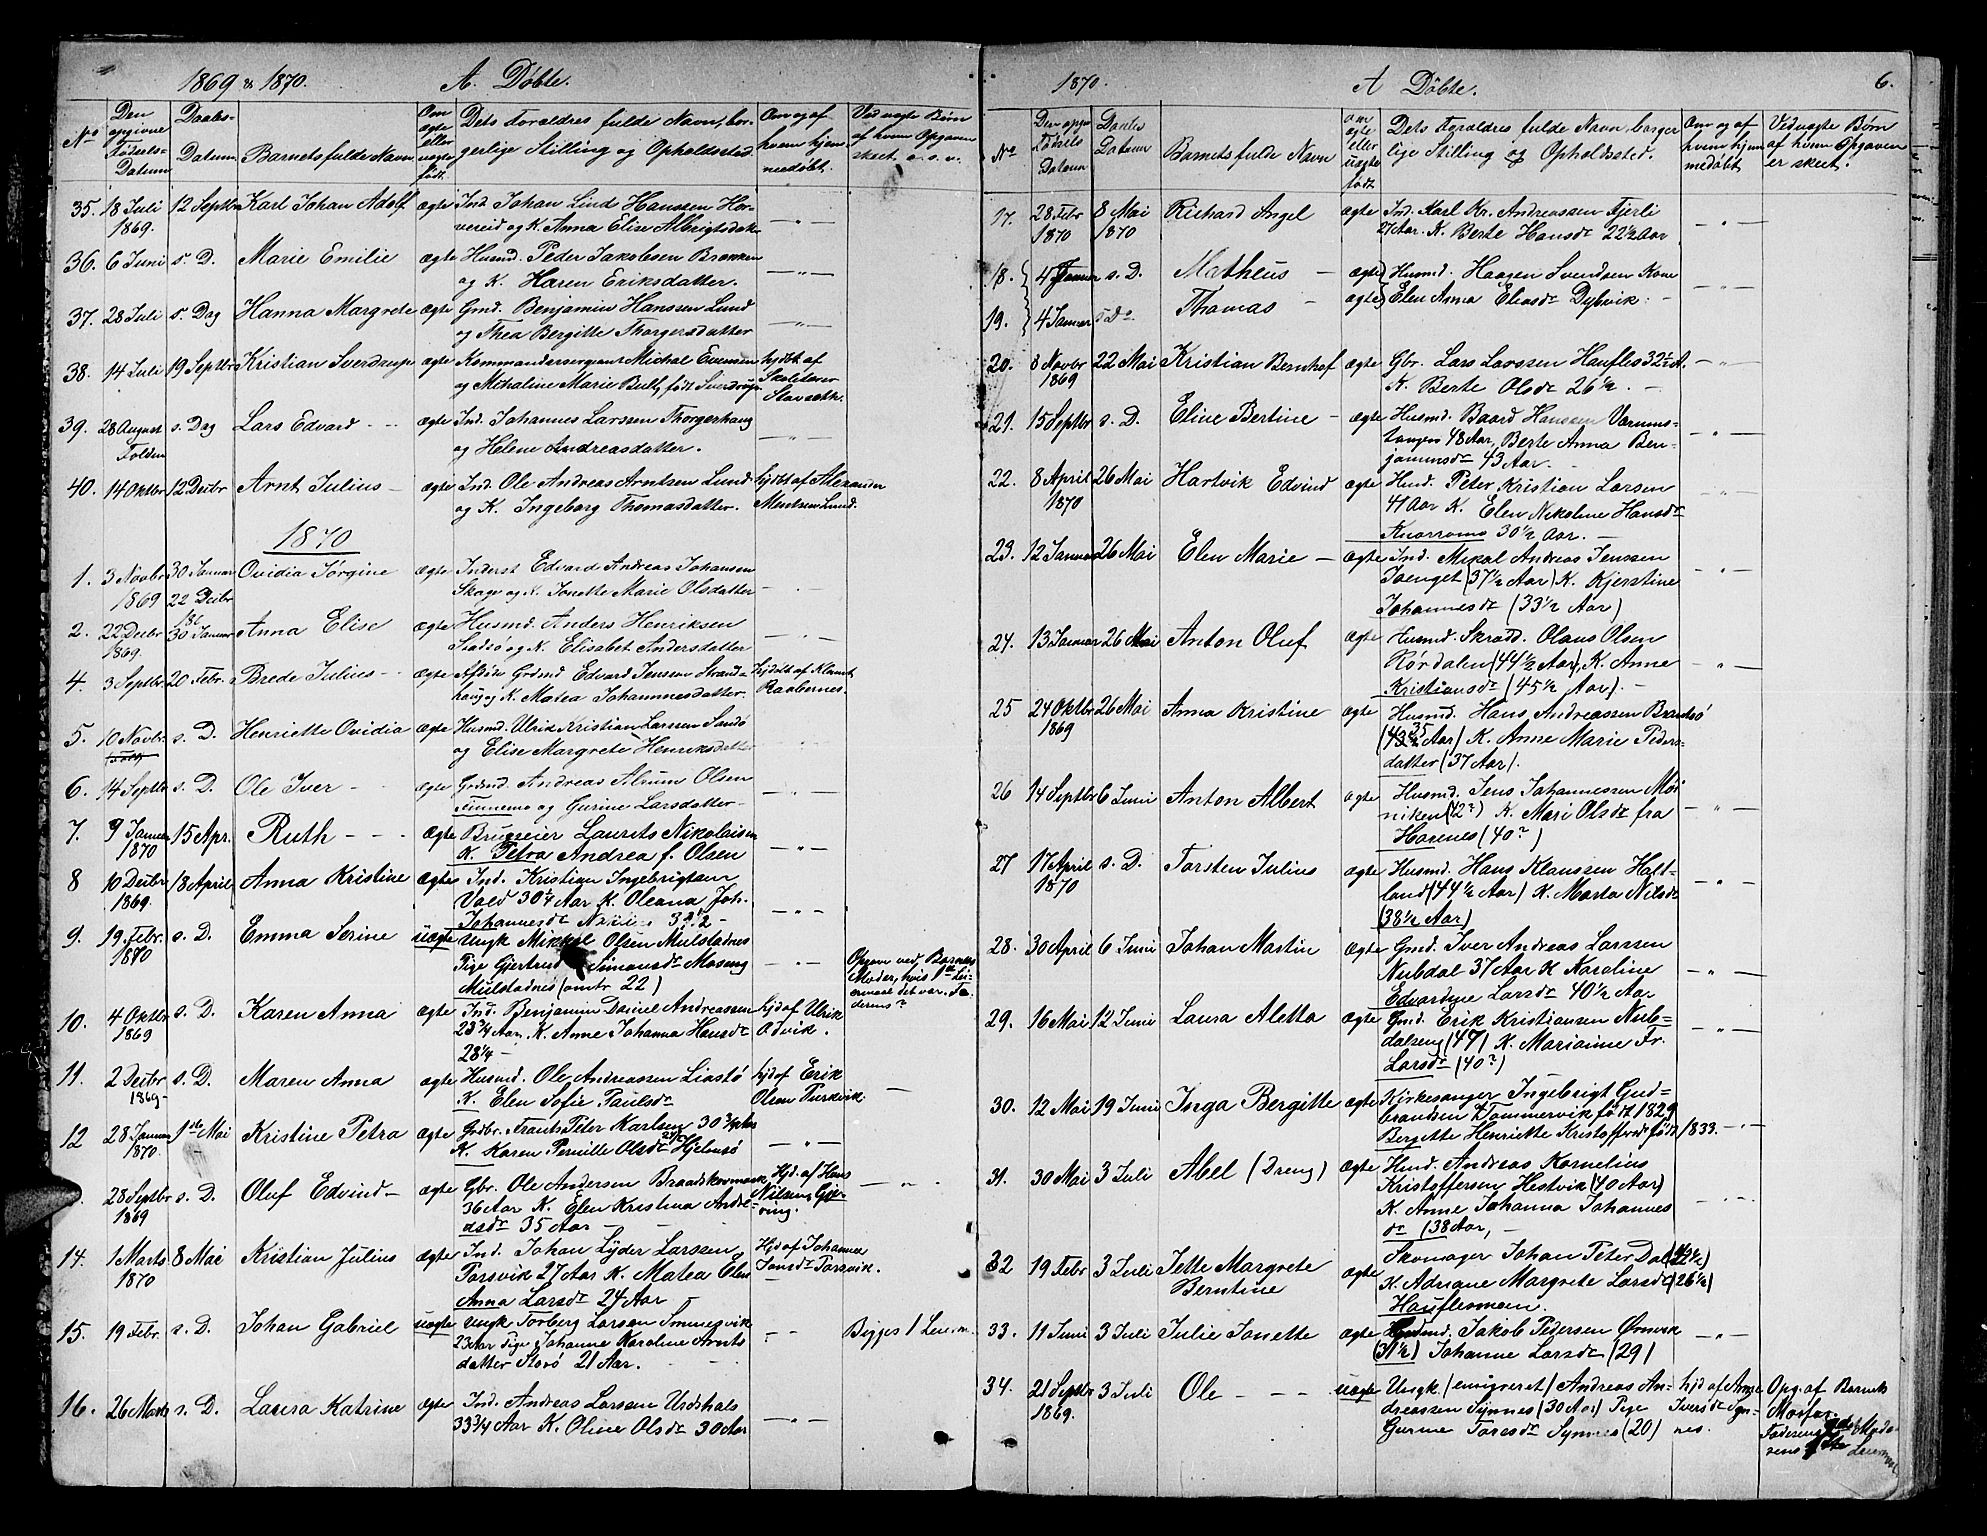 1869 & 1870. A. Døbte.
No
Den opgivne Fødsels-Datum
Daabs-Datum
Barnets fulde Navn
Om ægte eller uægte født.
Dets Forældres fulde Navn, borgerlige Stilling og Opholdssted.
Om og af hvem hjemmedøbt.
Ved uægte Børn af hvem Opgaven skeet o. s. v.
35. 18 Juli 12 Septbr Karl Johan Adolf ægte Ind. Johan Lind Hanssen Hor-
1869. vereid og K. Anna Elise Albrigtsdatr. — " —
36. 6 Juni s. D. Marie Emilie ægte Husmd. Peder Jakobsen Brækken
og K. Haren Eriksdatter. — " —
37. 28 Juli s. Dag Hanna Margrete ægte Gmd. Benjamin Hanssen Lund
og Thea Bergitte Thorgersdatter — " —
38. 14 Juli 19 Septbr Kristian Sverdrup ægte Kommandersergeant Michal Evensen hjdbt af
og Mihaline Marie Bull, født Sverdrup Skolelærer
Slavseth.
39. 28 August s. Dag Lars Edvard - - ægte Ind. Johannes Larssen Thorgerhaug
Folden og Helene Andreasdatter. — " —
40. 14 Oktbr 12 Decbr Arnt Julius - ægte Ind. Ole Andreas Arntsen Lund hjdbt af Alexander
og K. Ingeborg Thomasdatter. Mentsen Lund.
1870
1. 3 Novbr 30 Januar Ovidia Jørgine ægte Inderst Edvard Andreas Johansen
1869 22 Decbr Skage og K. Jonette Marie Olsdatter
2. 22 Decbr 30 Januar Anna Elise ægte Husmd. Anders Henriksen
1869. Stadsø og K. Elisabet Andersdatter
4. 3 Septbr 20 Febr. Brede Julius - ægte Afdøde Grdmd Edvard Jenssen Strand- hjdøbt af Klaus
haug og K. Matea Johannesdatter. Raabernes.
5. 10 Novbr. s. D. Henriette Ovidia ægte Husmd. Ulrik Kristian Larssen Sandø
og Elise Margrete Henriksdatter
6. 14 Septbr s. D. Ole Iver - ægte Grdmd. Andreas Alrum Olsen
Finnemo og Gurine Larsdatter -
7. 9 Januar 15 Apr. Ruth - - - ægte Brugseier Laurits Nikolaisen
1870 K. Petra Andrea f. Olsen — " —
8 10 Decbr 18 April Anna Kristine ægte Ind. Kristian Ingebrigtsen
1869. Vold 30¼ Aar K. Oleana Joh.
Johannesdr — " —
9. 19. Febr. s. D. Emma Serine uægte Ungk. Mikkel Olsen Mulstadnes
1870 Pige Gjertrud Simonsdr Moseng — " — Opgave ved Barnets
Mulstadnes (omtr 22) Moder, hvis 1ste Lei-
ermaal det var. Fa-
derens ?
10. 4 Oktbr s. D. Karen Anna ægte Ind. Benjamin Daniel Andreassen hj af Ulrik
1869 23¾ Aar. K. Anne Johanna Hansdr Advik.
28¼ -
11. 2 Decbr s. D. Maren Anna ægte Husmd. Ole Andreassen Liastø hjd af Erik
1869- K. Elen Sofie Paulsdr Olsen Purkvik —
12 28 Januar 1ste Mai Kristine Petra ægte Grdbr. Frants Peter Karlsen 30¾ Aar
1870. K. Karen Pernille Olsdr Hjelmsø — " —
28 Septbr s. D. Oluf Edvind - ægte Gbr. Ole Andersen Braadskovmark Hjd. af Hans
1869 36 Aar K. Elen Kristina Andre- Nilsen Gye-
dsdr 35 Aar - ving. — " —
14. 1 Marts 8 Mai Kristian Julius ægte Ind. Johan Lyder Larssen Hjd af Johanna
1870 Torsvik 27 Aar K. Matea Olea Jonsdr Torsvik.
Anna Larsdr 24 Aar
15. 19 Febr. s. D. Johan Gabriel uægte Ungk Torberg Larsen Sminesvik
23 Aar Pige Johanne Karoline Arnts Begges 1 Leierm.
datter Storø 21 Aar.
16. 26 Marts s. D. Laura Katrine ægte Ind. Andreas Larssen Urdshals
33¾ Aar K. Oline Olsdr 30 Aar — " —
1870. A Døbte. 6.
No
Den opgv Fødsels Datum
Daabs Datum
Barnets fulde Navn
om ægte eller uægte født
Dets Forældres fulde Navn, borgerlige Stilling og Opholdssted.
Om og af hvem hjemmedøbt
Ved uægte Børn af hvem Opgaven er skeet.
17. 28 Febr 8 Mai Richard Angel ægte Ind. Karl Kr. Andreassen Fjerli
1870 1870 27 Aar. K. Berte Hansdr 22½ Aar — " —
18. 4 Januar s. D. Matheus - ægte Husmd. Haagen Svendsen Kone
Elen Anna Eliasdr Dybvik. - — " —
19. 4 Januar s D. Thomas - ægte
20. 8 Novbr 22 Mai Kristian Bernhof ægte Gbr. Lars Larssen Haufles 32½ A.
1869 K. Berte Olsdr 26½. - — " —
21. 15 Septbr s. D. Eline Bertine - ægte Husmd. Baard Hanssen Værums-
tangen 48 Aar, Berte Anna Ben-
jaminsdr 43 Aar. — " —
22. 8 April 26 Mai Hartvik Edvind ægte Husd. Peter Kristian Larsen
1870 41 Aar K. Elen Nikoline Hansdr
Knarrums 30½ Aar. - — " —
23. 12 Januar 26 Mai Elen Marie - ægte Ind. Mikal Andreas Jenssen
Svenget (37½ Aar) K. Kjerstine
Johannesdr (33½ Aar) — " —
24. 13 Januar 26 Mai Anton Oluf ægte Husmd. Skrædd. Olaus Olsen
Rørdalen (44½ Aar), K. Anne
Kristiansdr (45½ Aar). - — " —
25 24 Oktbr 26 Mai Anna Kristine ægte Husmd. Hans Andreassen Brandsø
1869 (43½ Aar) K. Anne Marie Peders-
datter (37 Aar).
26 14 Septbr 6 Juni Anton Albert ægte Husmd. Jens Johannessen Møi
niken (42?) K. Mari Olsdr fra
Horenes (40?) — " —
27 17 April s. D. Torsten Julius ægte Husmd. Hans Klaussen Haft-
1870 land (44½ Aar) K. Marta Nilsdr
(38½ Aar) — " —
28. 30 April 6 Juni Johan Martin ægte Gmd. Iver Andreas Larssen
Nubdal 37 Aar K Karoline
Edvardine Larsdr 40½ Aar — " —
29. 16 Mai 12 Juni Laura Aletta ægte Gmd. Erik Kristiansen Nub-
dalseng (47) K. Marianne Fr.
Larsdr (40?) — " —
30. 12 Mai 19 Juni Inga Bergitte ægte Kirkesanger Ingebrigt Gud-
brandsen Tømmervik født 1829
Bergette Henriette Kristoffersdr født 1833. — " —
31. 30 Mai 3 Juli Abel (Dreng) ægte Husd. Andreas Kornelius
Kristoffersen Hestvik (40 Aar)
K. Anne Johanna Johannes
dr (38 Aar, - — " —
32 19 Febr 3 Juli Jette Margrete ægte Skomager Johan Peter Dal (22½)
Berntine K. Adriane Margrete Larsdr (26½)
Hauflesmoen.
33. 11 Juni 3 Juli Julie Jonette ægte Husmd. Jakob Pedersen Ørnvik
(31½) Johanne Larsdr (29) — " —
34. 21 Septbr 3 Juli Ole - - - uægte Ungk. (emigreret) Andreas An- hjd af Anne Opg. af Barnets
1869. dreassen Synnes (30 Aar) Pige Iversdr Syn- Morfar.
Gurine Toresdr Synnes (20) nes. Faderens